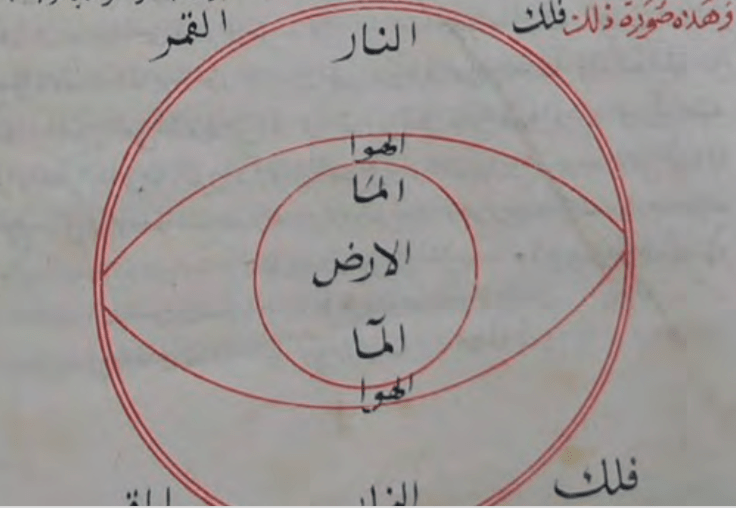 وهذه صورة ذلك
فلك النار القمر
الهوا
الما
الارض
المآ
الهوا
فلك
النار